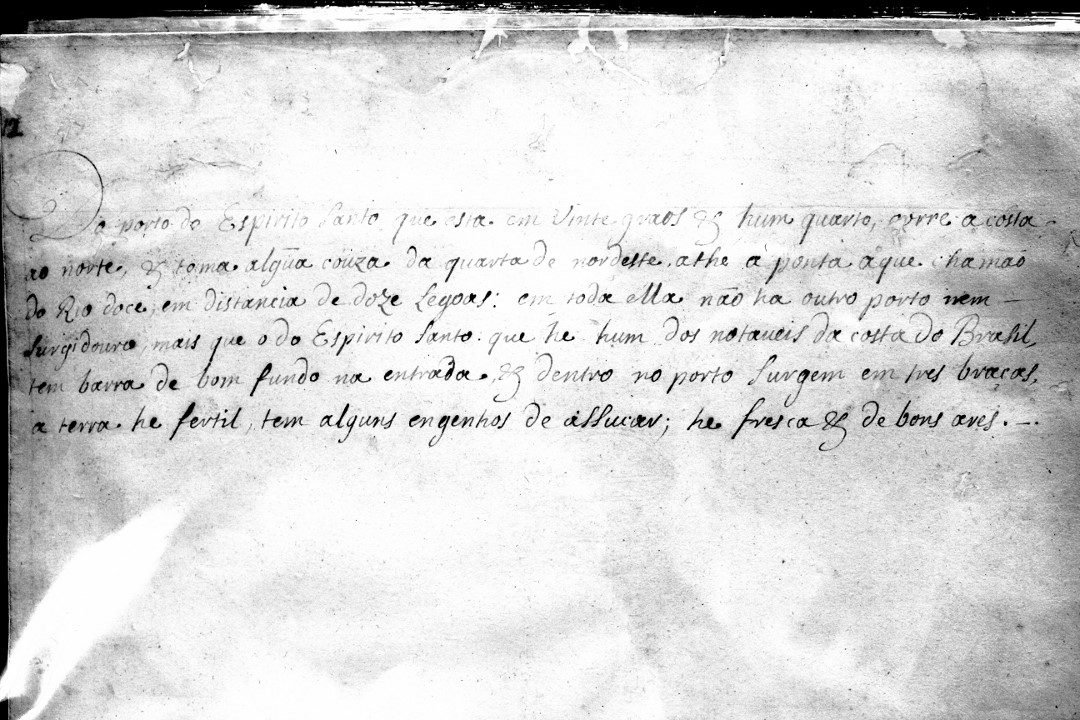 12
Do porto do Espirito Santo que esta em Vinte graos & hum quarto, corre a costa
ao norte, & toma algũa couza da quarta de nordeste, athe à ponta aque chamaõ
do Rio doce, em distancia de doze Legoas: em toda ella não ha outro porto nem
surgidouro, mais que o do Espirito Santo: que he hum dos notaueis da costa do Brasil,
tem barra de bom fundo na entrada, & dentro no porto surgem em tres braças,
a terra he fertil, tem alguns engenhos de assucar; he fresca & de bons ares.